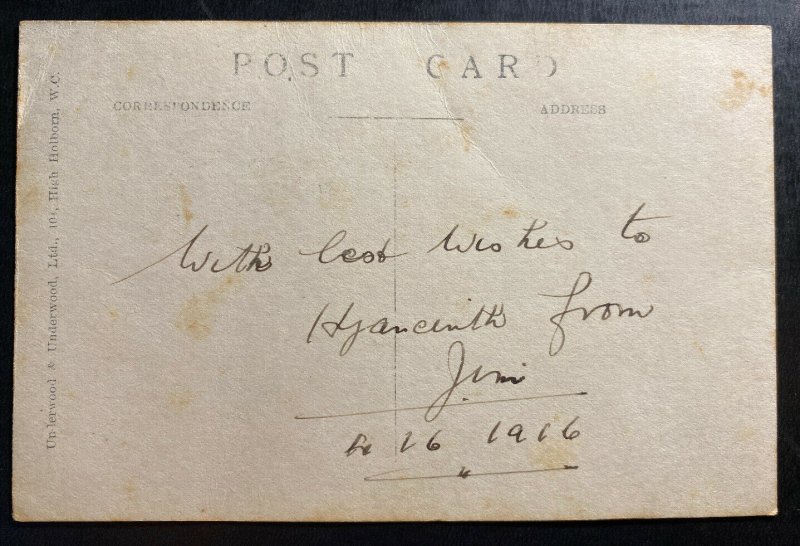 POST CARD
CORRESPONDENCE
ADDRESS
Underwood & Underwood, Ltd., 104, High Holborn, W.C.
With best wishes to
Hyancinth from
Jim
4 16 1916